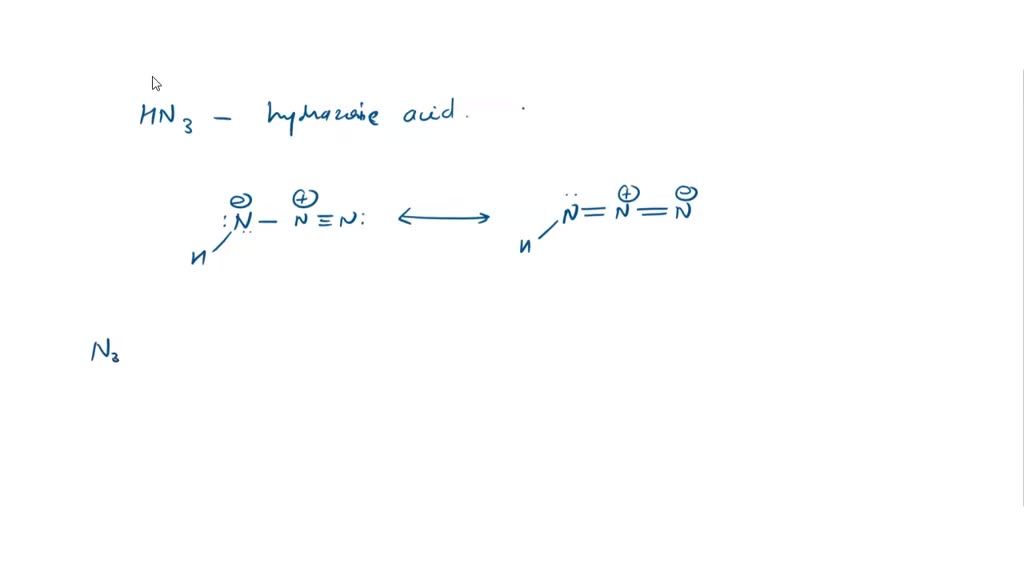 HN3 - hydrazoic acid.
:N̈⊖ - N⊕ ≡ N: ⟷ N̈ = N⊕ = N⊖
H H
N3